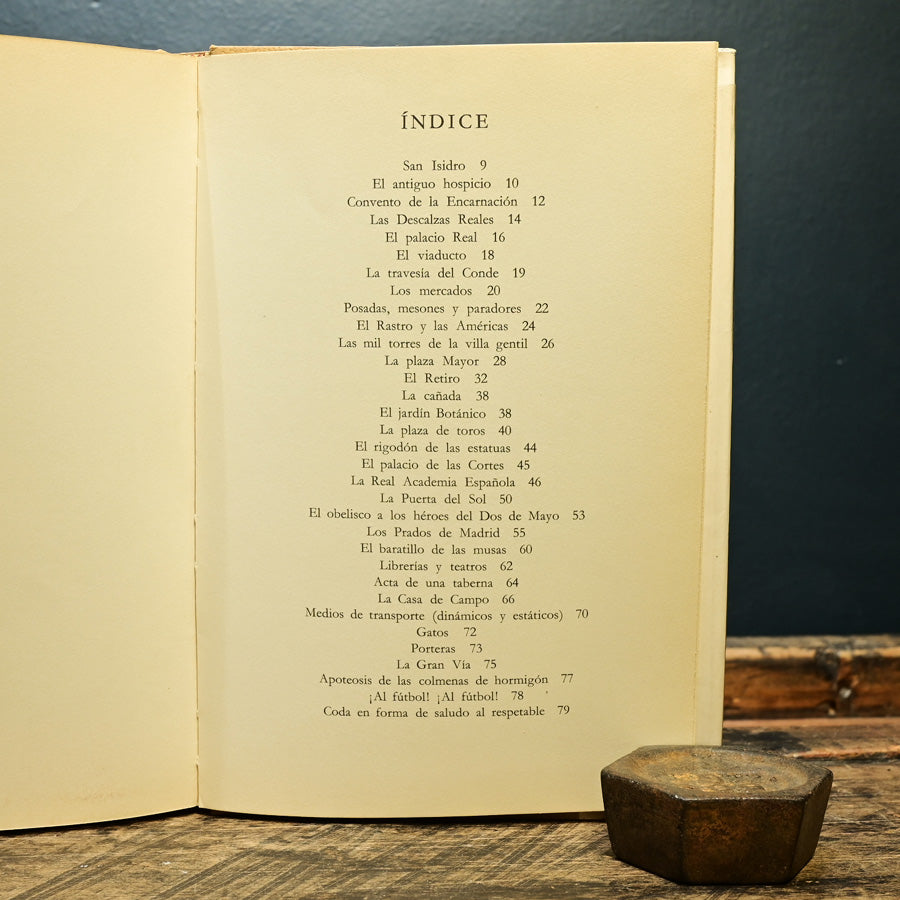 ÍNDICE
San Isidro 9
El antiguo hospicio 10
Convento de la Encarnación 12
Las Descalzas Reales 14
El palacio Real 16
El viaducto 18
La travesía del Conde 19
Los mercados 20
Posadas, mesones y paradores 22
El Rastro y las Américas 24
Las mil torres de la villa gentil 26
La plaza Mayor 28
El Retiro 32
La cañada 38
El jardín Botánico 38
La plaza de toros 40
El rigodón de las estatuas 44
El palacio de las Cortes 45
La Real Academia Española 46
La Puerta del Sol 50
El obelisco a los héroes del Dos de Mayo 53
Los Prados de Madrid 55
El baratillo de las musas 60
Librerías y teatros 62
Acta de una taberna 64
La Casa de Campo 66
Medios de transporte (dinámicos y estáticos) 70
Gatos 72
Porteras 73
La Gran Vía 75
Apoteosis de las colmenas de hormigón 77
¡Al fútbol! ¡Al fútbol! 78
Coda en forma de saludo al respetable 79